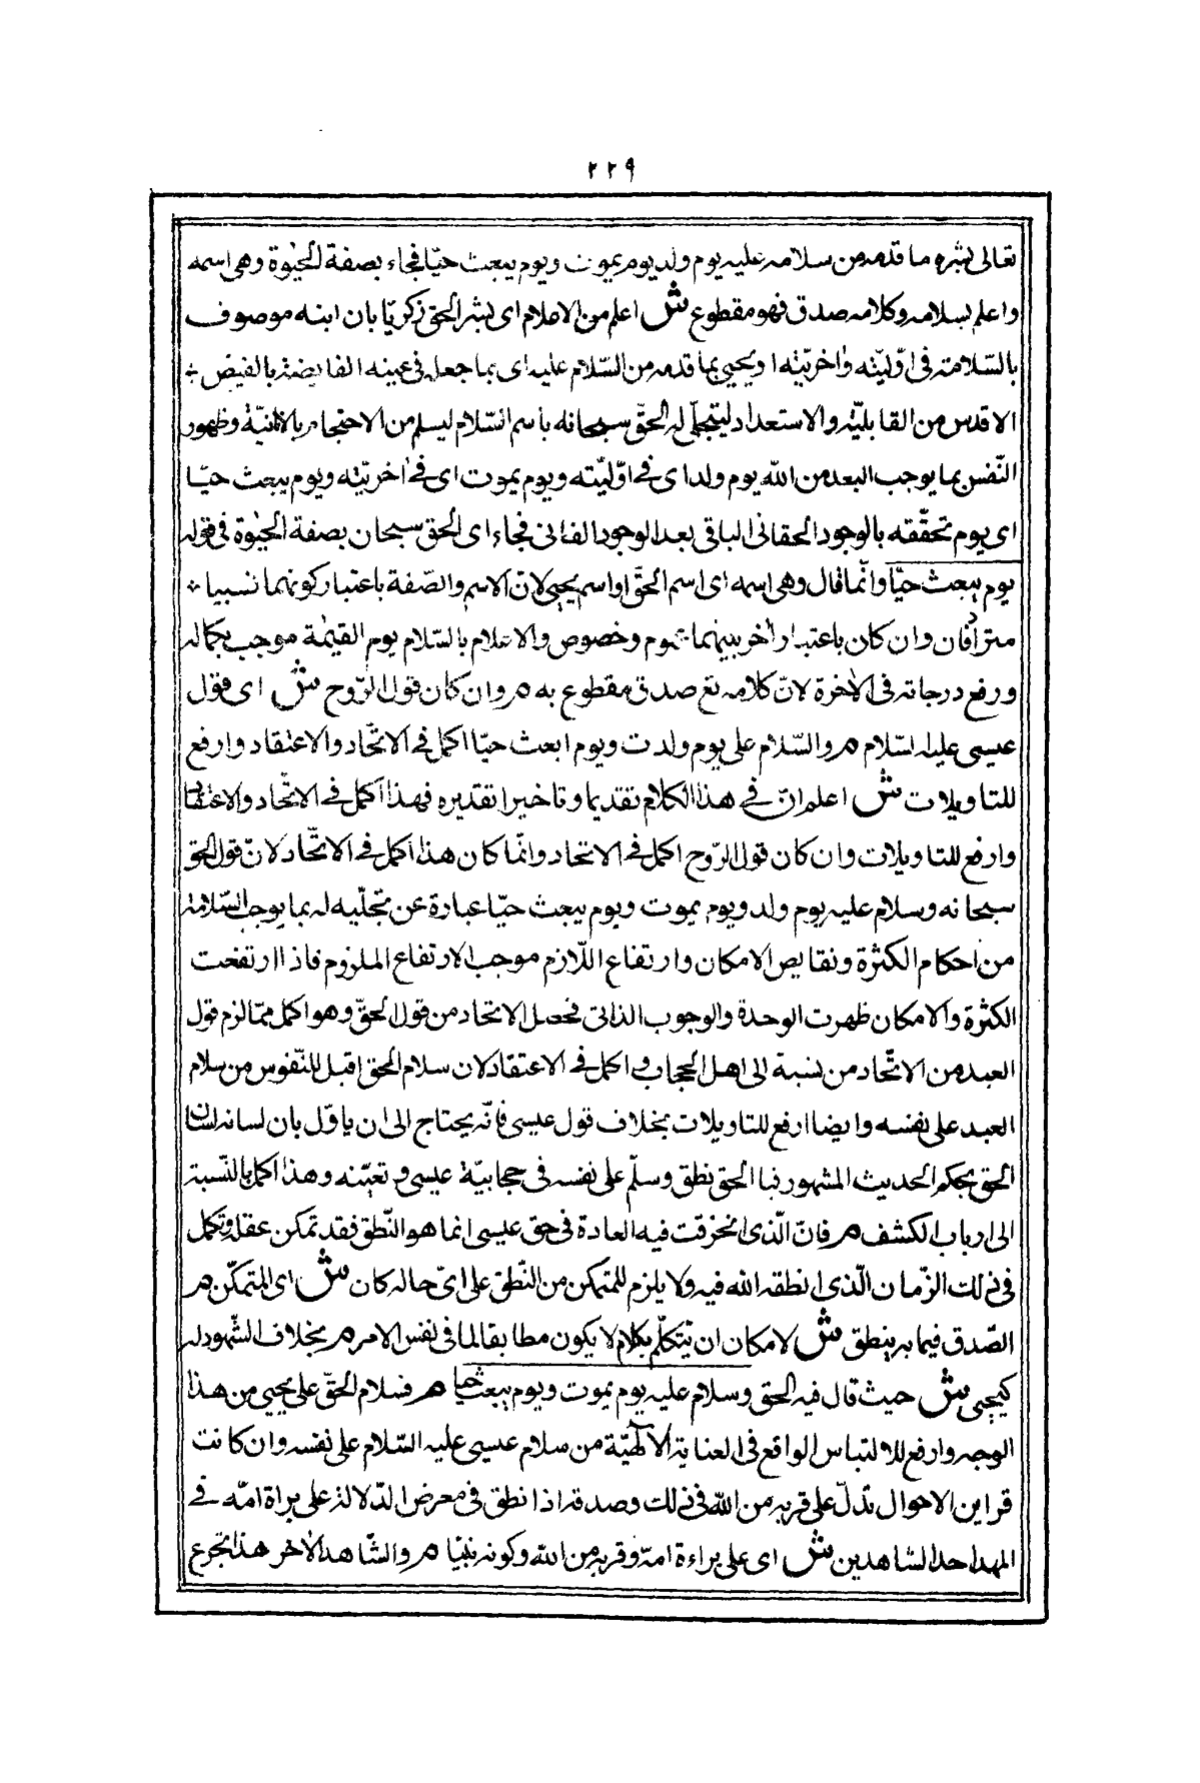 ٢٢٩
تعالى بشره ما قدمه من سلامه عليه يوم ولد يوم يموت ويوم يبعث حيّا فجاء بصفة الحيٰوة وهى اسمه
واعلم بسلامه وكلامه صدق فهو مقطوع ش اعلم من الاعلام اى بشر الحق زكريّا بان ابنه موصوف
بالسّلامة فى اوّليّته واٰخريّته او يحيى بما قدمه من السّلام عليه اى بما جعله فى عينه الفايضة بالفيض
الاقدس من القابليّة والاستعداد ليتجلّى له الحقّ سبحانه باسم السّلام ليسلم من الاحتجاب بالانانيّة وظهور
النّفس بما يوجب البعد من اللّه يوم ولد اى فى اوّليّته ويوم يموت اى فى اٰخريّته ويوم يبعث حيّا
اى يوم تحقّقه بالوجود الحقانى الباقى بعد الوجود الفانى فجاء اى الحق سبحان بصفة الحيٰوة فى قوله
يوم يبعث حيّا وانّما قال وهى اسمه اى اسم الحقّ او اسم يحيى لانّ الاسم والصّفة باعتبار كونهما نسبيا
مترادفان وان كان باعتبار اٰخر بينهما عموم وخصوص والاعلام بالسّلام يوم القيٰمة موجب بكماله
ورفع درجاته فى الاٰخرة لانّ كلامه تع صدق مقطوع به م وان كان قول الرّوح ش اى قول
عيسى عليه السّلام م والسّلام على يوم ولدت ويوم ابعث حيّا اكمل فى الاتّحاد والاعتقاد وارفع
للتاويلات ش اعلم انّ فى هذا الكلام تقديما وتاخيرا تقديره فهذا اكمل فى الاتّحاد والاعتقاد
وارفع للتاويلات وان كان قول الرّوح اكمل فى الاتحاد وانّما كان هذا اكمل فى الاتّحاد لانّ قول الحق
سبحانه وسلام عليه يوم ولد ويوم يموت ويوم يبعث حيّا عبارة عن تجلّيه له بما يوجب السّلامة
من احكام الكثرة ونقايص الامكان وارتفاع اللّازم موجب لارتفاع الملزوم فاذا ارتفعت
الكثرة والامكان ظهرت الوحدة والوجوب الذاتى فحصل الاتحاد من قول الحقّ وهو اكمل ممّا لزم قول
العبد من الاتّحاد من نسبة الى اهل الحجاب و اكمل فى الاعتقاد لان سلام الحق اقبل للنّفوس من سلام
العبد على نفسه وايضا ارفع للتاويلات بخلاف قول عيسى فانّه يحتاج الى ان ياوّل بان لسانه لسان
الحق بحكم الحديث المشهور فبا الحق نطق وسلّم على نفسه فى حجابيّة عيسى و تعيّنه وهذا اكمل بالنّسبة
الى ارباب الكشف م فانّ الّذى انخرقت فيه العادة فى حق عيسى انما هو النّطق فقد تمكن عقله وتكمل
فى ذلك الزّمان الّذى انطقه اللّه فيه ولا يلزم للمتمكن من النّطق على اىّ حاله كان ش اى المتمكّن م
الصّدق فيما به ينطق ش لامكان ان يتكلّم بكلام لا يكون مطابقا لما فى نفس الامر م بخلاف الشّهود له
كيحيى ش حيث قال فيه الحق وسلام عليه يوم يموت ويوم يبعث حيا م فسلام الحقّ على يحيى من هذا
الوجه وارفع للالتباس الواقع فى العناية الالٰهيّة من سلام عيسى عليه السّلام على نفسه وان كانت
قراين الاحوال تدلّ على قربه من اللّه فى ذلك وصدقه اذا نطق فى معرض الدّلالة على براة امّه فى
المهد احد الشاهدين ش اى على براءة امّه وقربه من اللّه وكونه نبيّا م والشّاهد الاٰخر هذا الجرع